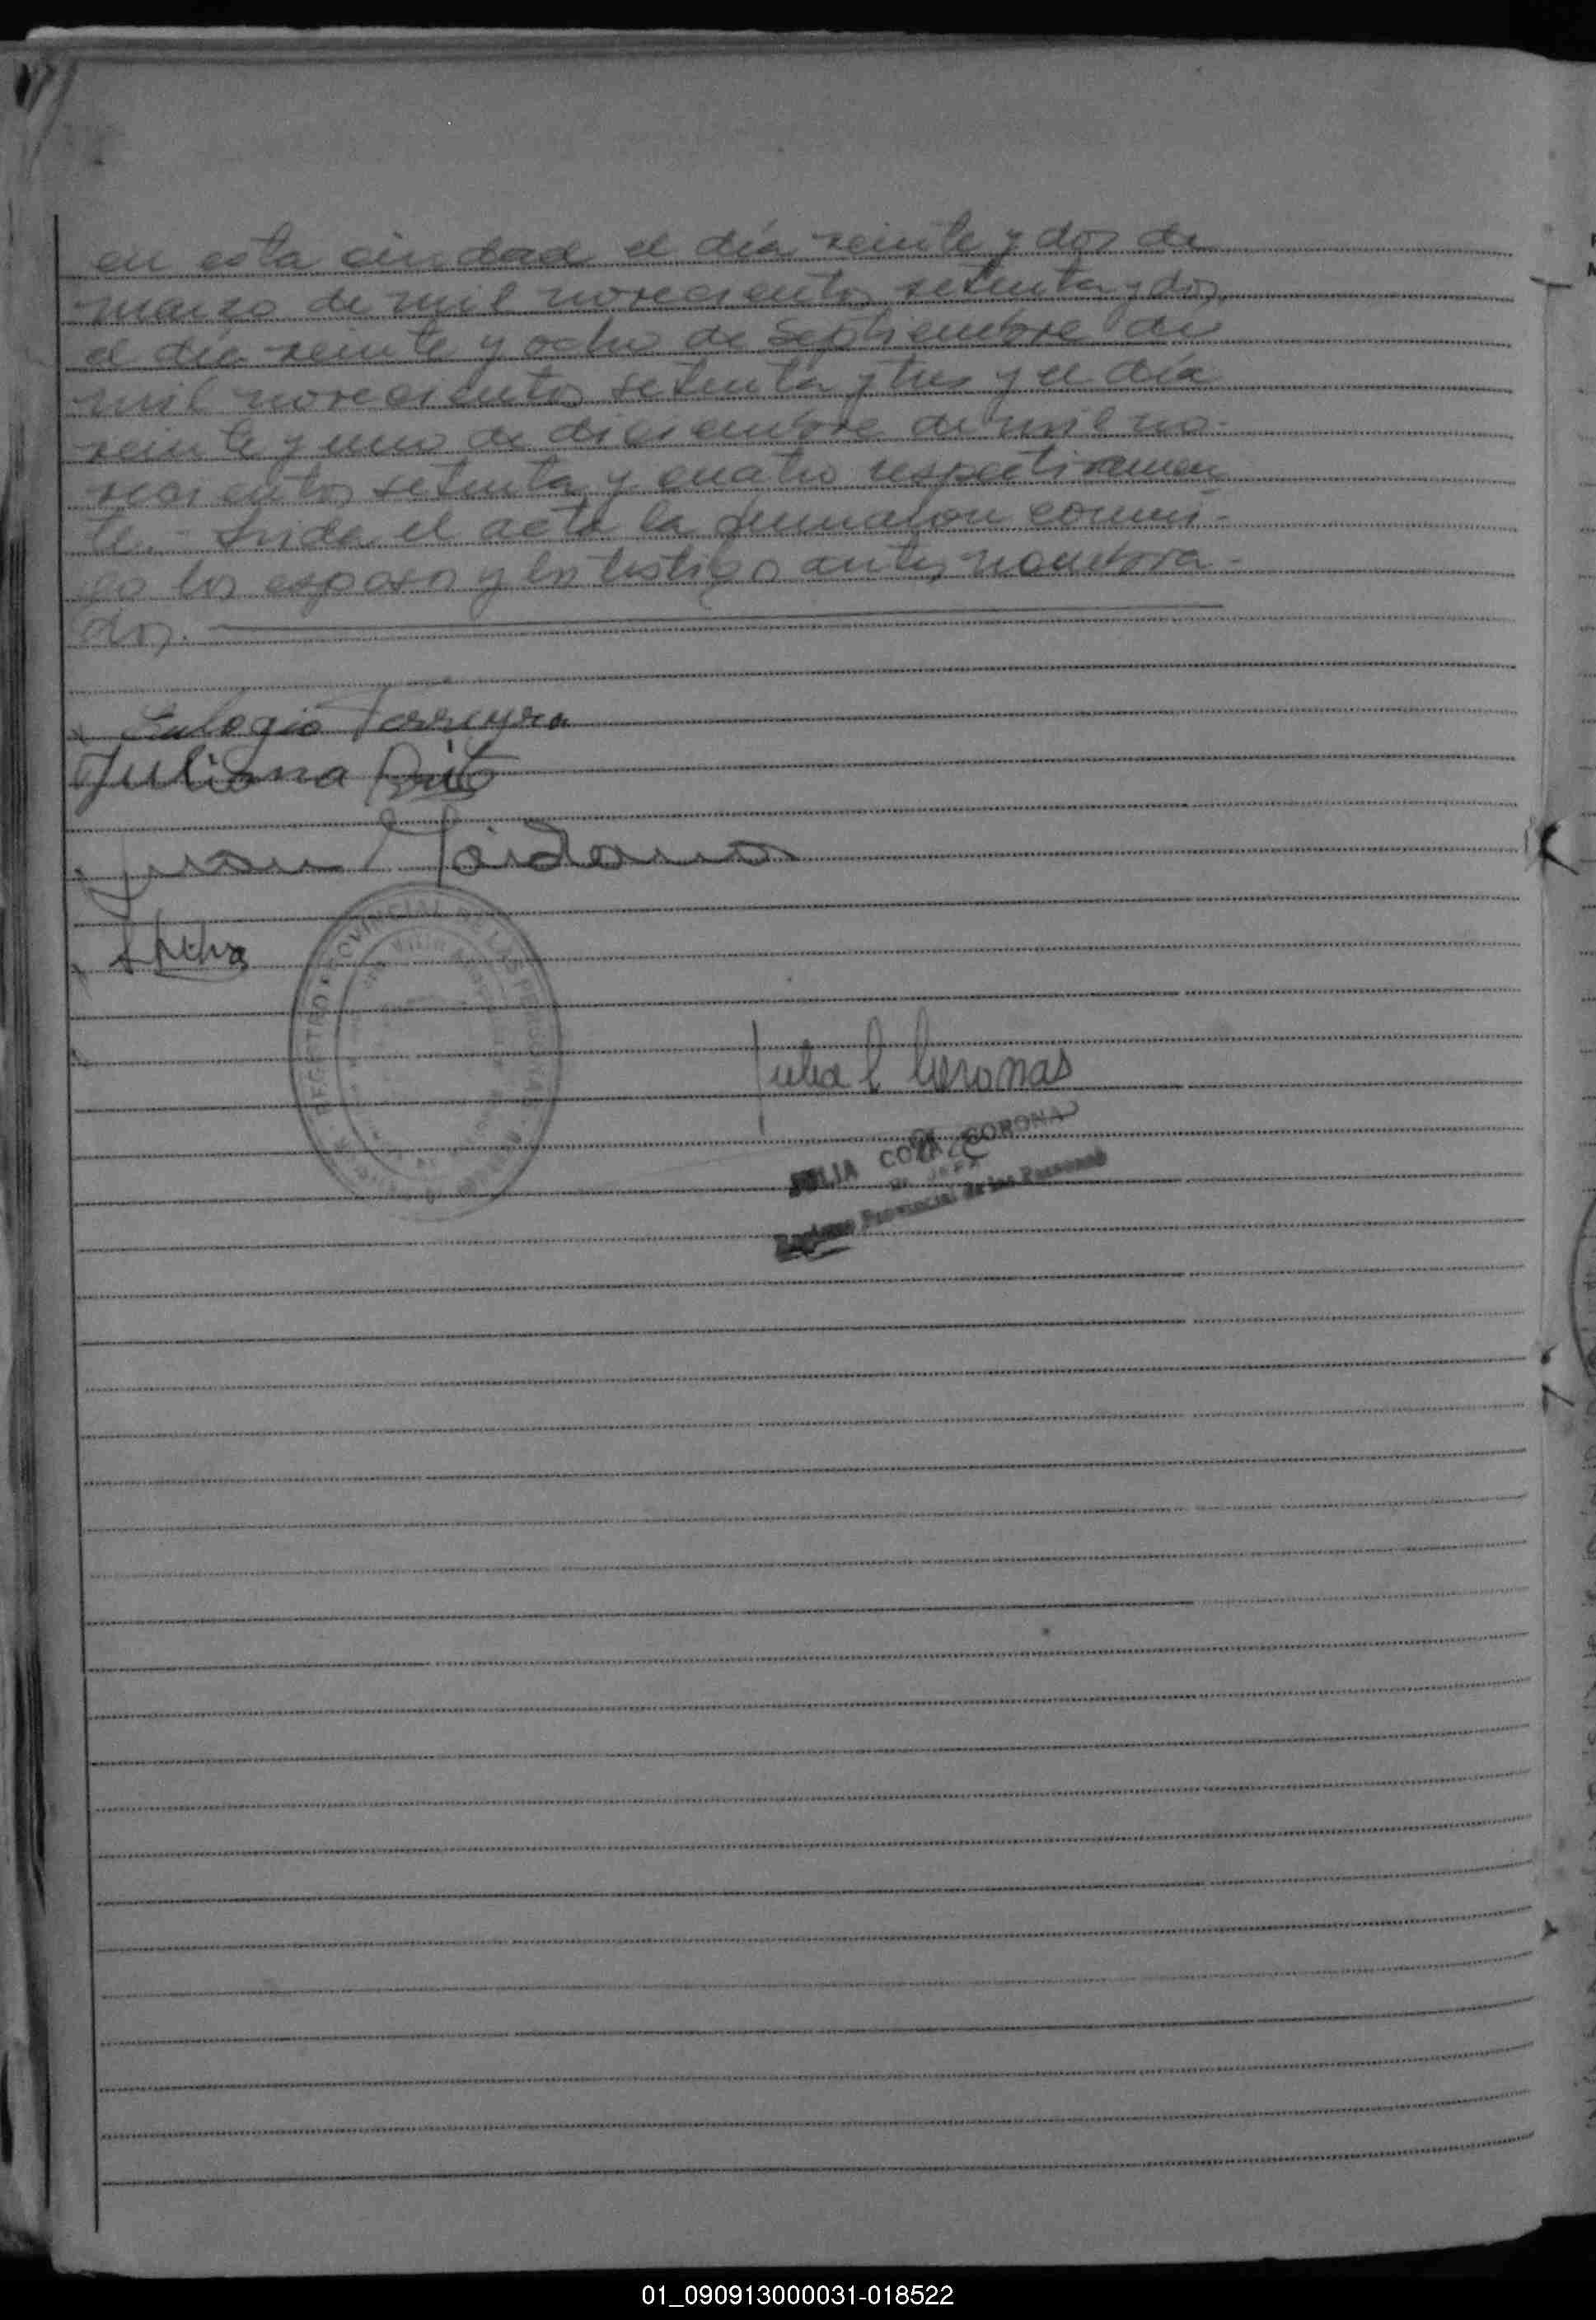 en esta ciudad el día veinte y dos de
marzo de mil novecientos setenta y dos,
el día veinte y ocho de Septiembre de
mil novecientos setenta y tres y el día
veinte y uno de diciembre de mil no-
vecientos setenta y cuatro respectivamen
te.- Leida el acta la firmaron conmi-
go los esposos y los testigos antes nombra-
dos.
Eulogio Ferreyra
Juliana
Juan
REGISTRO PROVINCIAL DE LAS PERSONAS
Julia C
JULIA CORONA
Registro Provincial de las Personas
01_090913000031-018522